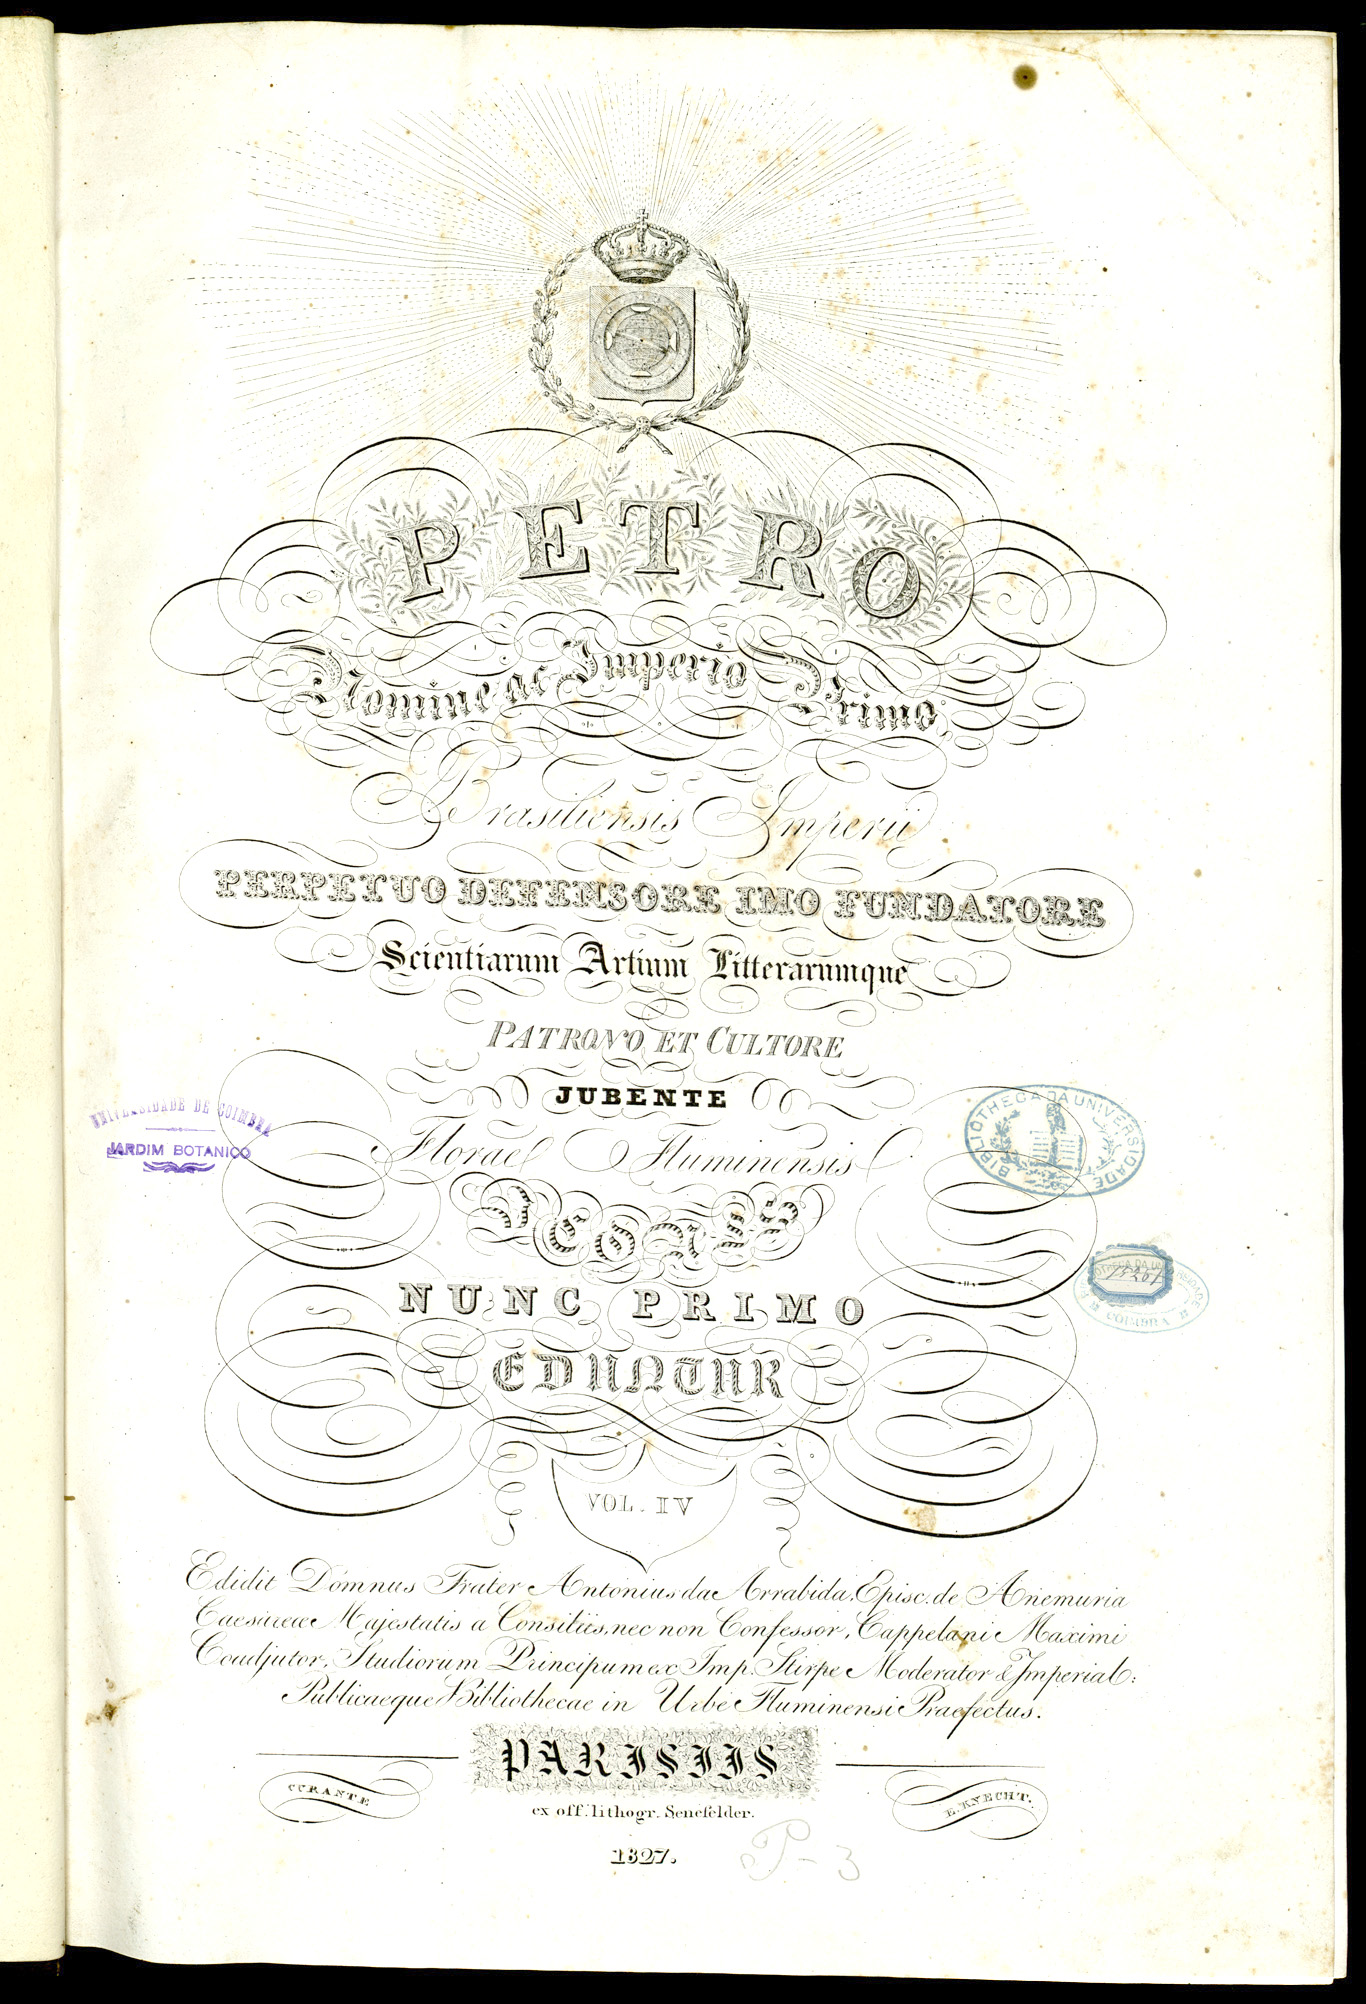 PETRO
Nomine ac Imperio Primo,
Brasiliensis Imperii
PERPETUO DEFENSORE IMO FUNDATORE
Scientiarum Artium Litterarumque
PATRONO ET CULTORE
JUBENTE
UNIVERSIDADE DE COIMBRA
JARDIM BOTANICO
BIBLIOTHECA DA UNIVERSIDADE
Florae Fluminensis
ICONES
NUNC PRIMO
COIMBRA
EDUNTUR
VOL. IV
Edidit Domnus Frater Antonius da Arrabida, Episc. de Anemuria
Caesareae Majestatis a Consiliis, nec non Confessor, Cappelani Maximi
Coadjutor, Studiorum Principum ex Imp. Stirpe Moderator & Imperial:
Publicaeque Bibliothecae in Urbe Fluminensi Praefectus.
PARISIIS
CURANTE E. KNECHT.
ex off. lithogr. Senefelder.
1827.
P-3